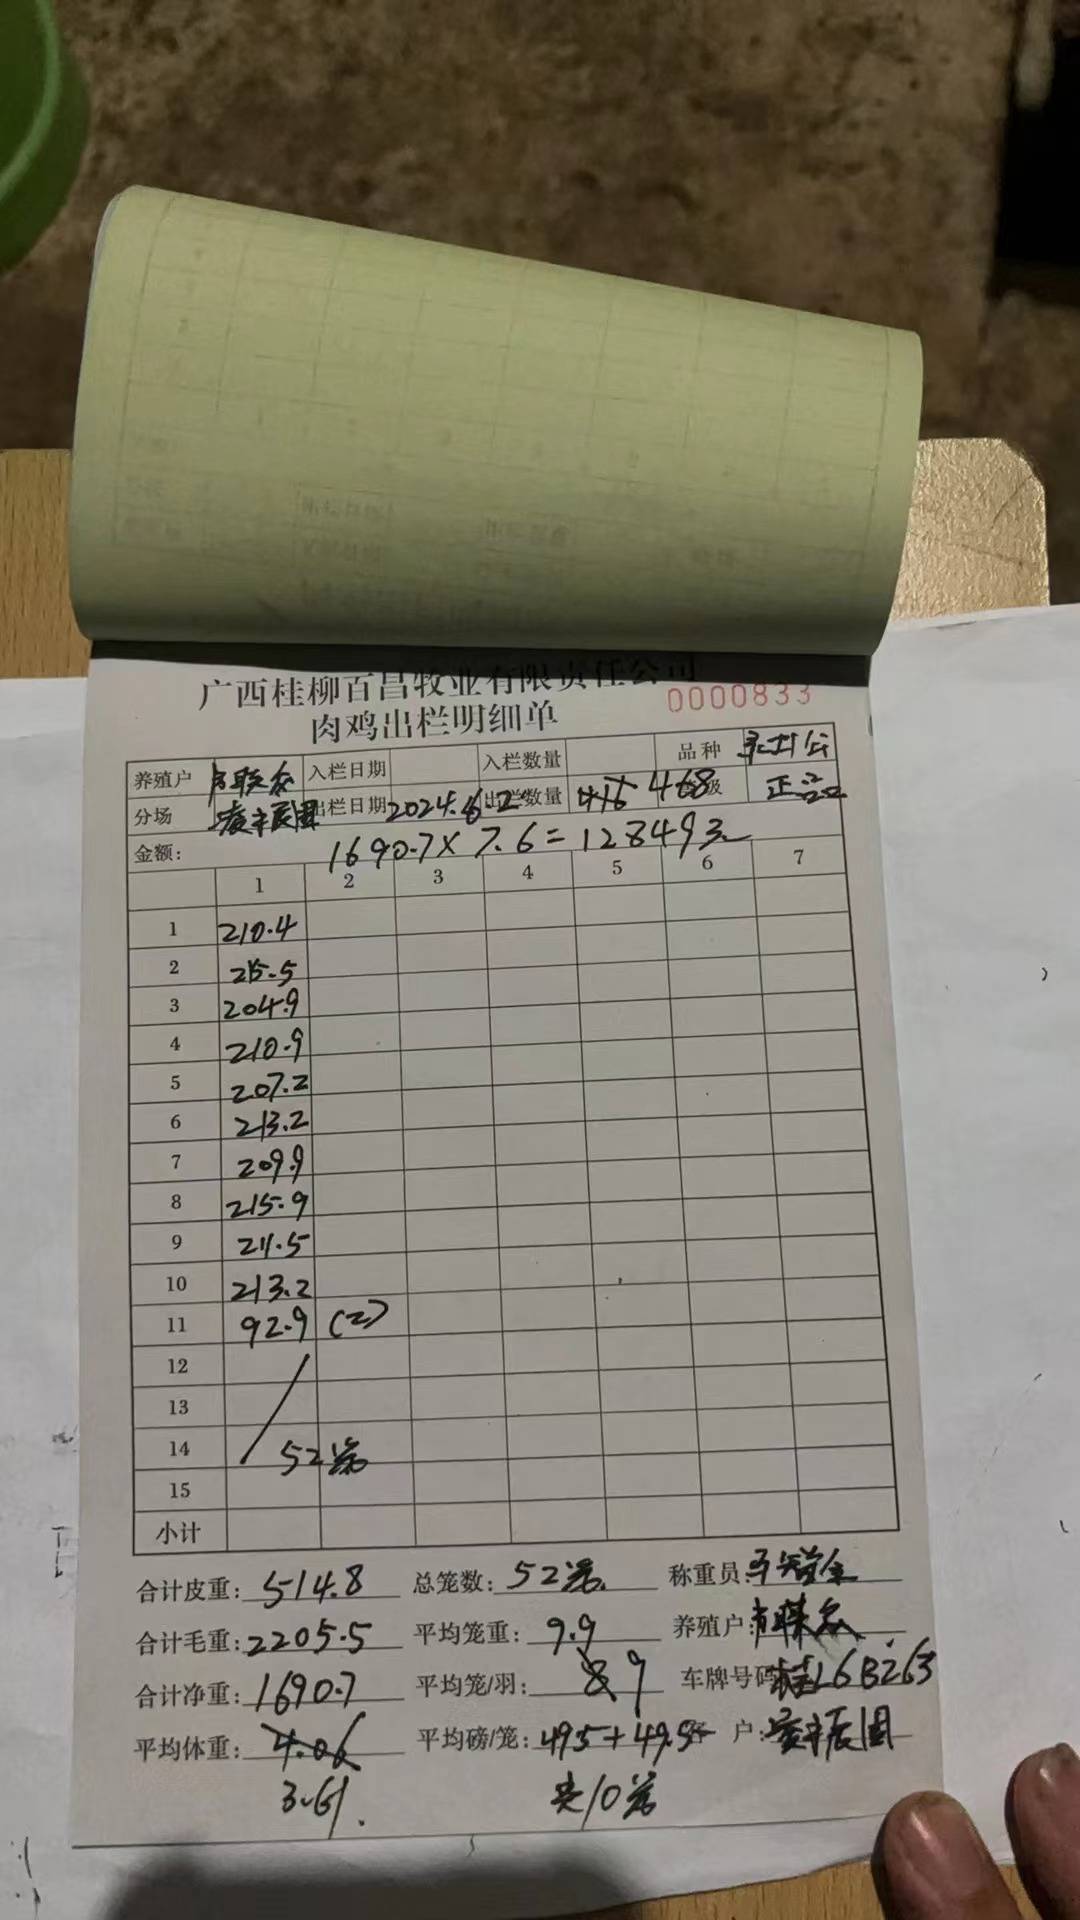 广西桂柳百昌牧业有限责任公司
0000833
肉鸡出栏明细单
养殖户 联众 入栏日期 入栏数量 品种
分场 出栏日期 2024.6.2 出栏数量 468 级 正品
金额: 1690.7×7.6=128493
1 2 3 4 5 6 7
1 210.4
2 215.5
3 204.9
4 210.9
5 207.2
6 213.2
7 209.9
8 215.9
9 211.5
10 213.2
11 92.9 (2)
12
13
14 52笼
15
小计
合计皮重: 514.8 总笼数: 52笼 称重员:
合计毛重: 2205.5 平均笼重: 9.9 养殖户:
合计净重: 1690.7 平均笼/羽: 9 车牌号码: 桂L6B263
平均体重: 4.06 平均磅/笼: 49.5+49.5 户:
3.61. 共10笼